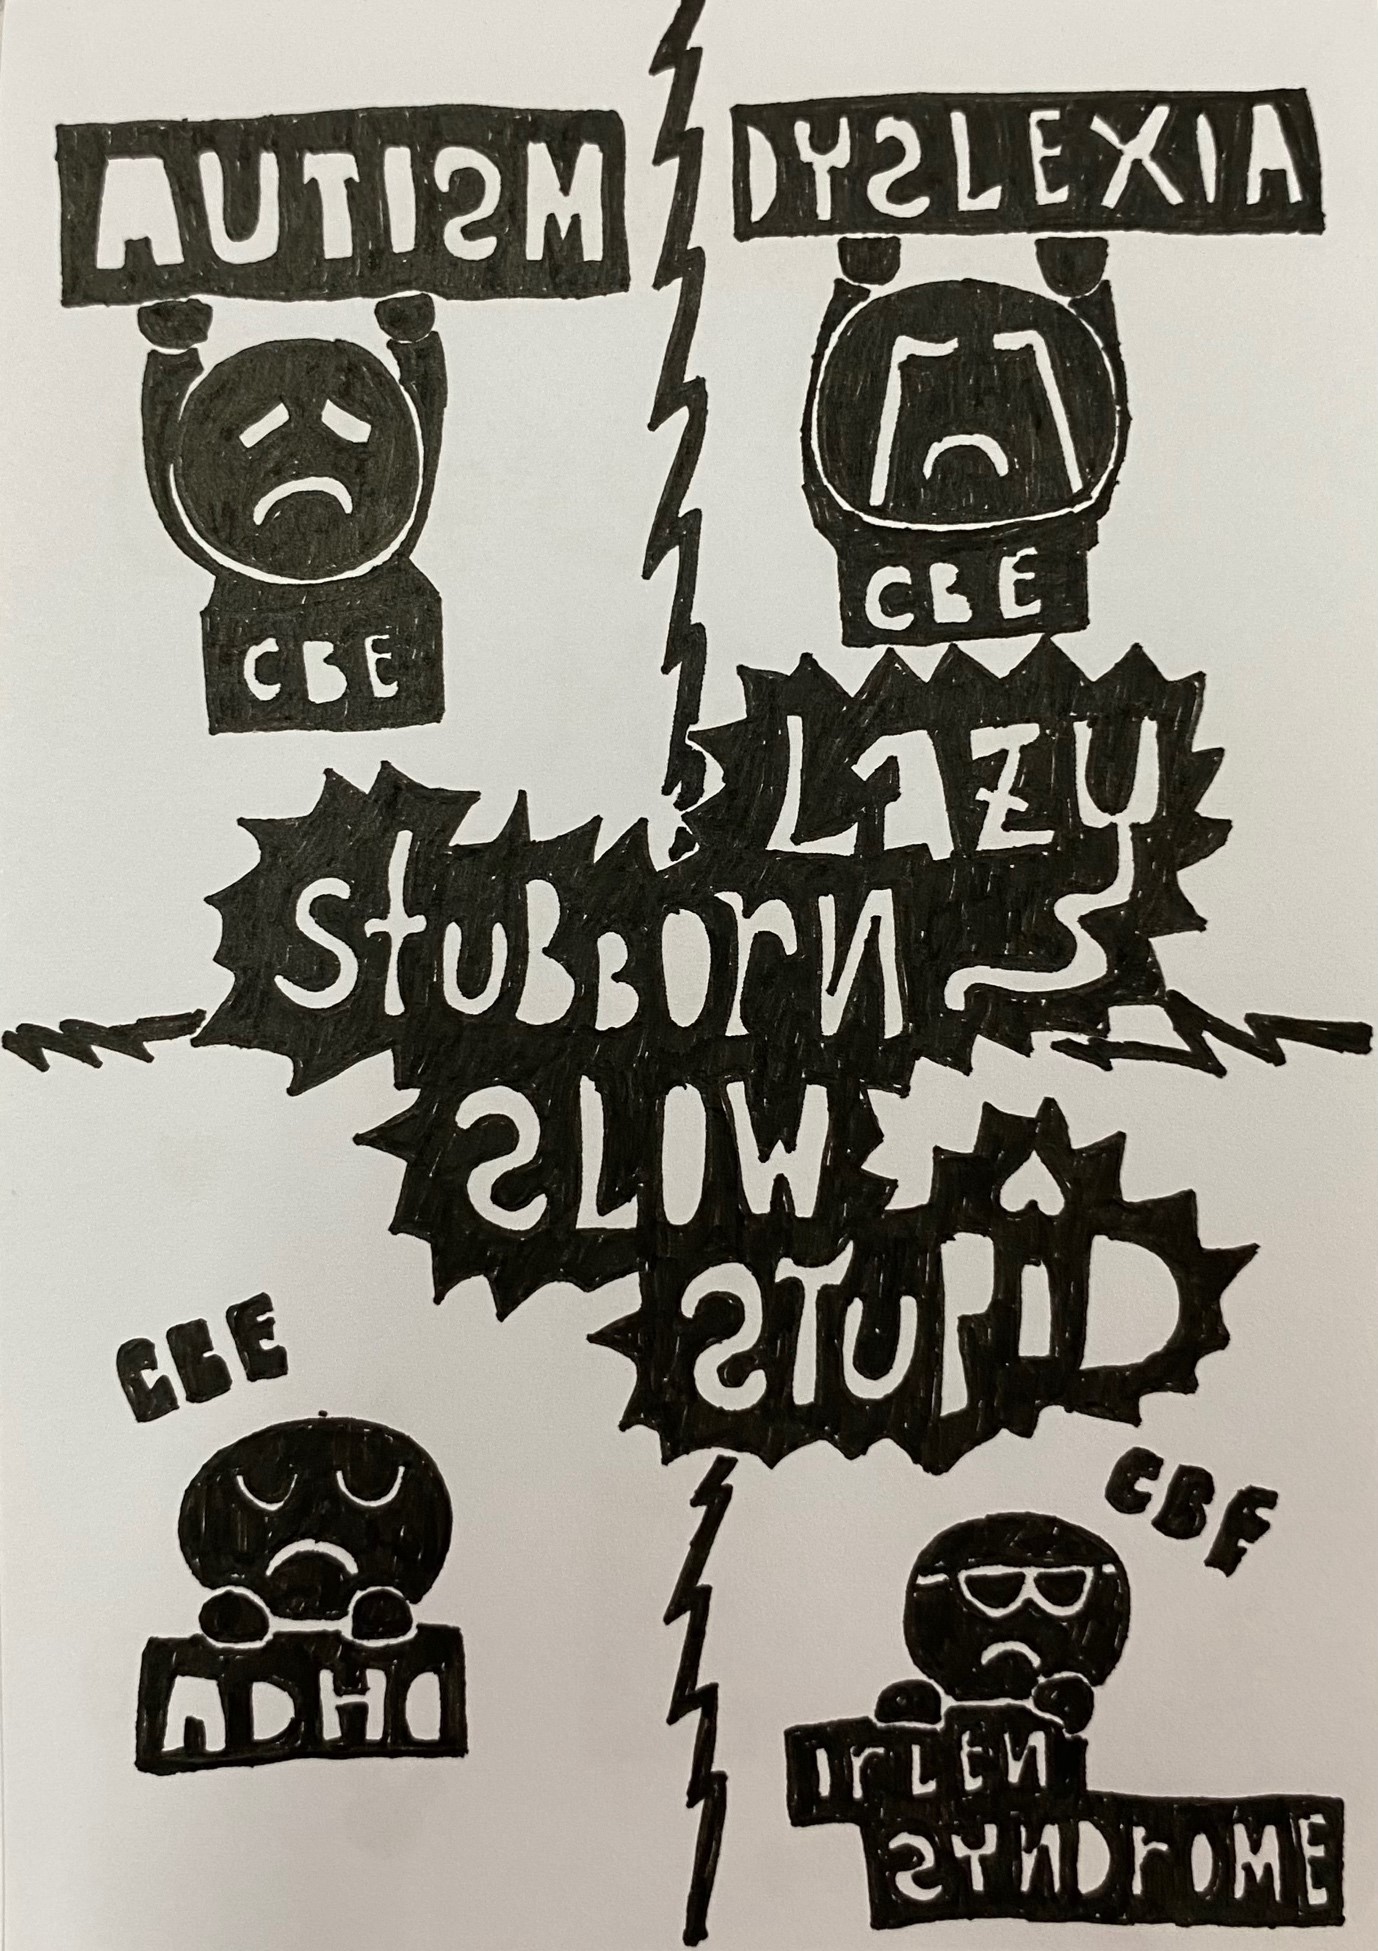 AUTISM
DYSLEXIA
CBE
CBE
LAZY
StUBBOrN
SLOW
STUPiD
CBE
CBE
ADHD
IrLEN
SYNDrOME